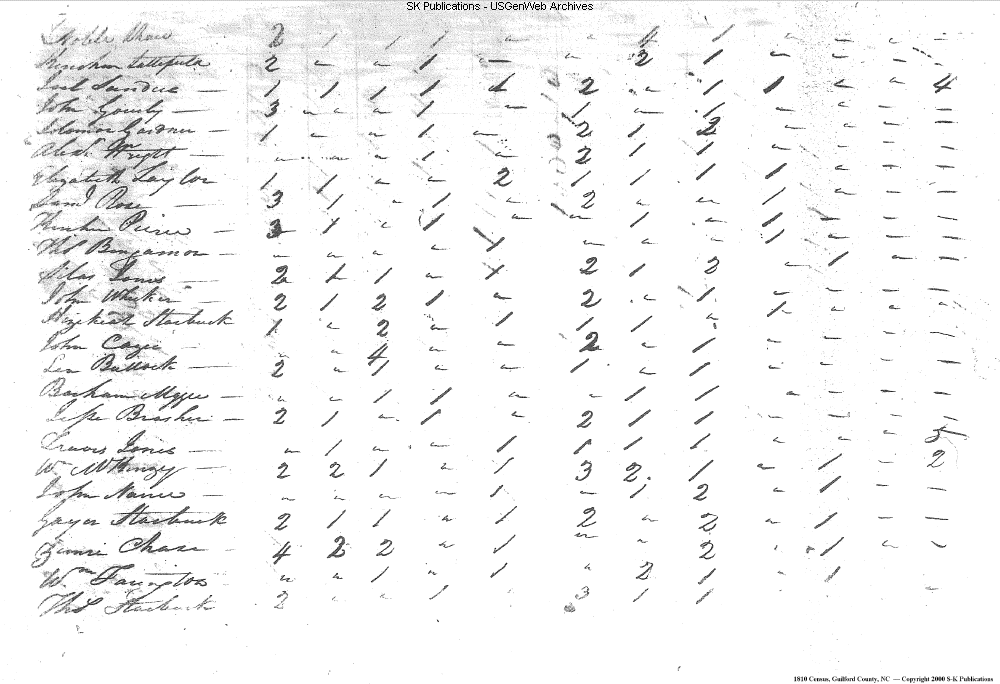 SK Publications - USGenWeb Archives
Noble 2 1 1 1 - - 4 1 - - - -
2 - - 1 - - 2 1 - - - -
1 1 1 1 1 2 - 1 1 - - 4
John 3 - - - 1 - 1 - 1 - - - -
Solomon Gardner 1 - - 1 - 2 1 2 - - - -
Alexd. Wright - - - 1 - 2 1 1 - - - -
Elizabeth Taylor 1 1 - - 2 1 1 1 1 - - -
Saml Rose 3 1 - 1 - 2 - - 1 - - -
3 1 - 1 - - 1 - 1 - - -
Ths Benjamon - - - - 1 - - - 1 - - -
Silas Jones 2 1 1 - 1 2 1 3 - 1 - -
John 2 1 2 1 - 2 - 1 - - - -
Hezekiah Starbuck 1 - 2 - 1 1 1 - 1 - - -
John - - 4 - - 2 - 1 - - - -
Bullock 2 - 1 - - 1 - 1 - - - -
- - 1 1 - - 1 1 - - - -
Brasher 2 1 - 1 - 2 1 1 - - - -
Travis Jones - 1 - - 1 1 1 1 - - - 5
Wm McKinzey 2 2 1 - 1 3 2 1 - 1 - 2
John - - - - 1 - 1 2 - 1 - -
Gayer Starbuck 2 1 1 - 1 2 - 2 - 1 - -
Zimri Chase 4 2 2 - 1 - - 2 - 1 - -
Wm Farington - - 1 - 1 - 2 1 - 1 -
Ths Starbuck 2 - - 1 - 3 1 1 - - -
1810 Census, Guilford County, NC — Copyright 2000 S-K Publications